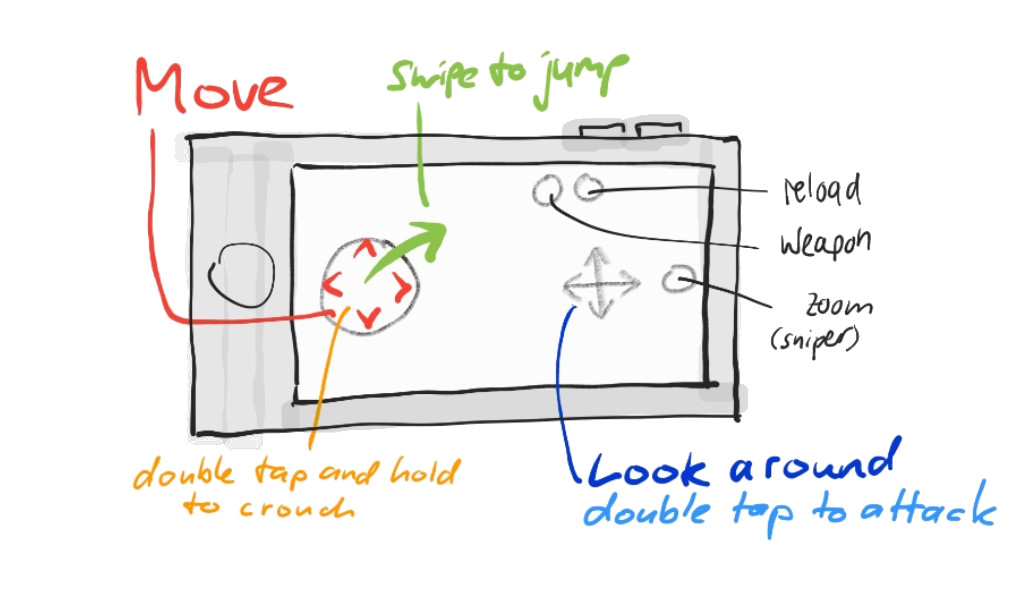 Move
Swipe to jump
reload
Weapon
Zoom
(sniper)
double tap and hold
to crouch
Look around
double tap to attack